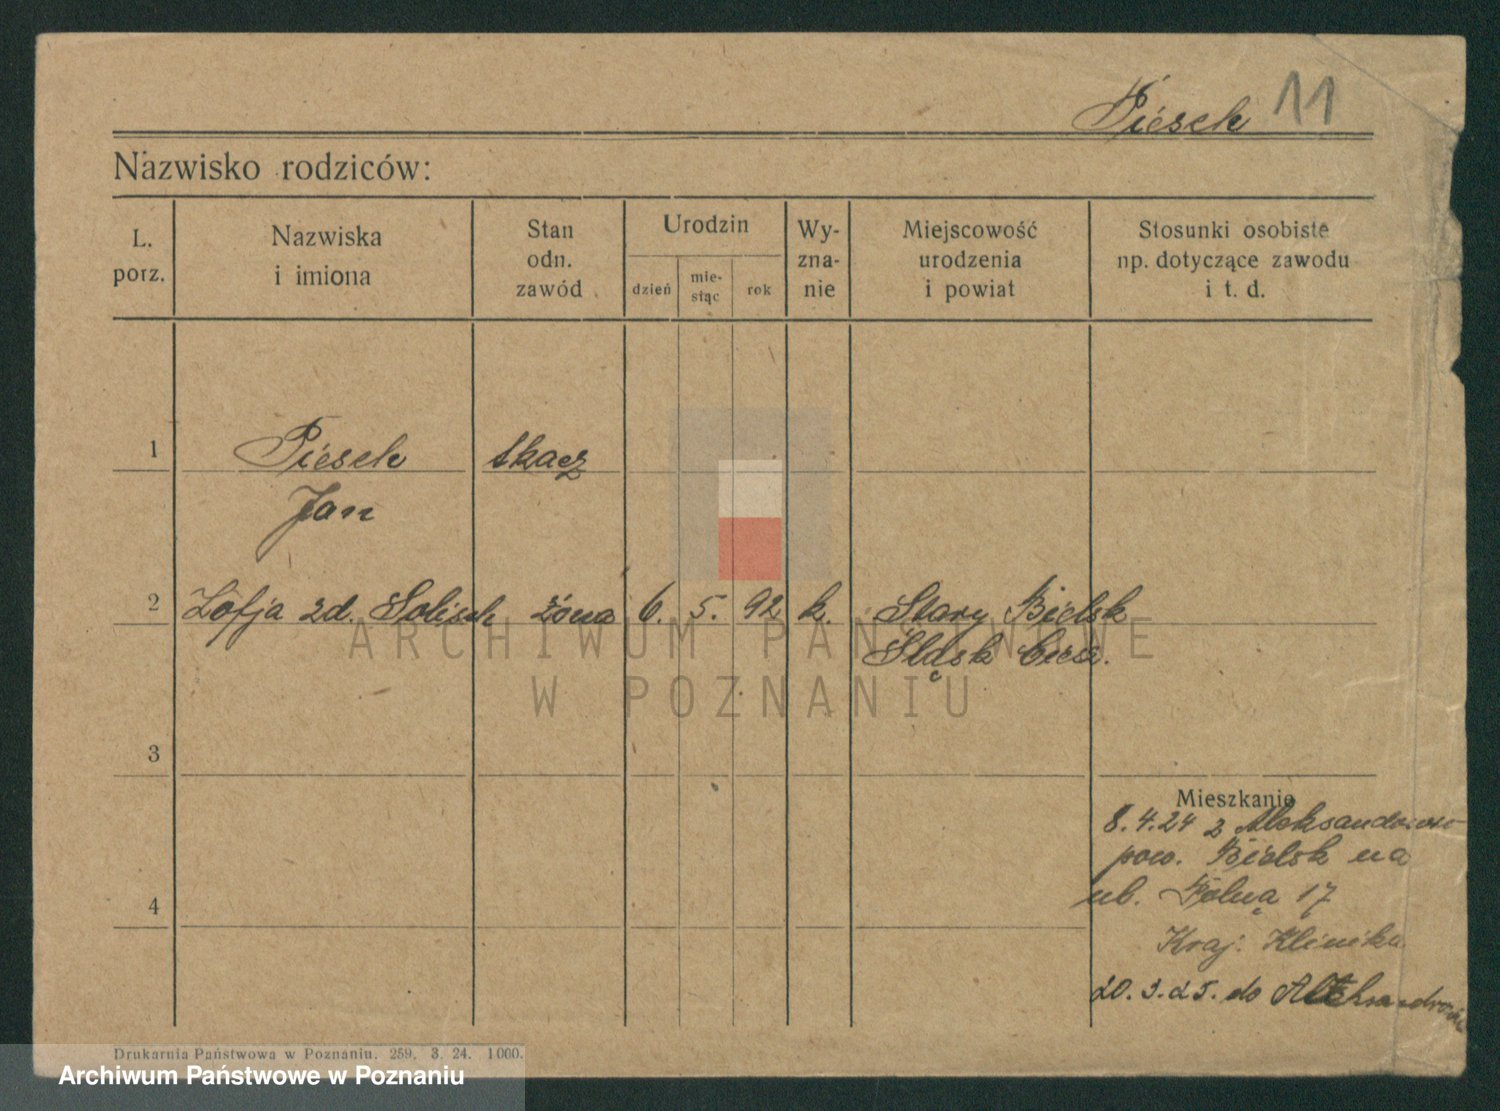 Piesch 11
Nazwisko rodziców:
L. porz.
Nazwiska i imiona
Stan odn. zawód
Urodzin
dzień
mie-siąc
rok
Wy-zna-nie
Miejscowość urodzenia i powiat
Stosunki osobiste np. dotyczące zawodu i t. d.
1 Piesch tkacz
Jan
2 Zofja zd. Solisch żona 6. 5. 92 k. Stary Bielsk
Śląsk Ciesz.
3
Mieszkanie
8.4.24 z Aleksandrowo
pow. Bielsk na
ul. Polną 17
4
Kraj. Klinika
20.3.25. do Aleksandrowic
ARCHIWUM PAŃSTWOWE
W POZNANIU
Drukarnia Państwowa w Poznaniu. 259. 3. 24. 1000.
Archiwum Państwowe w Poznaniu